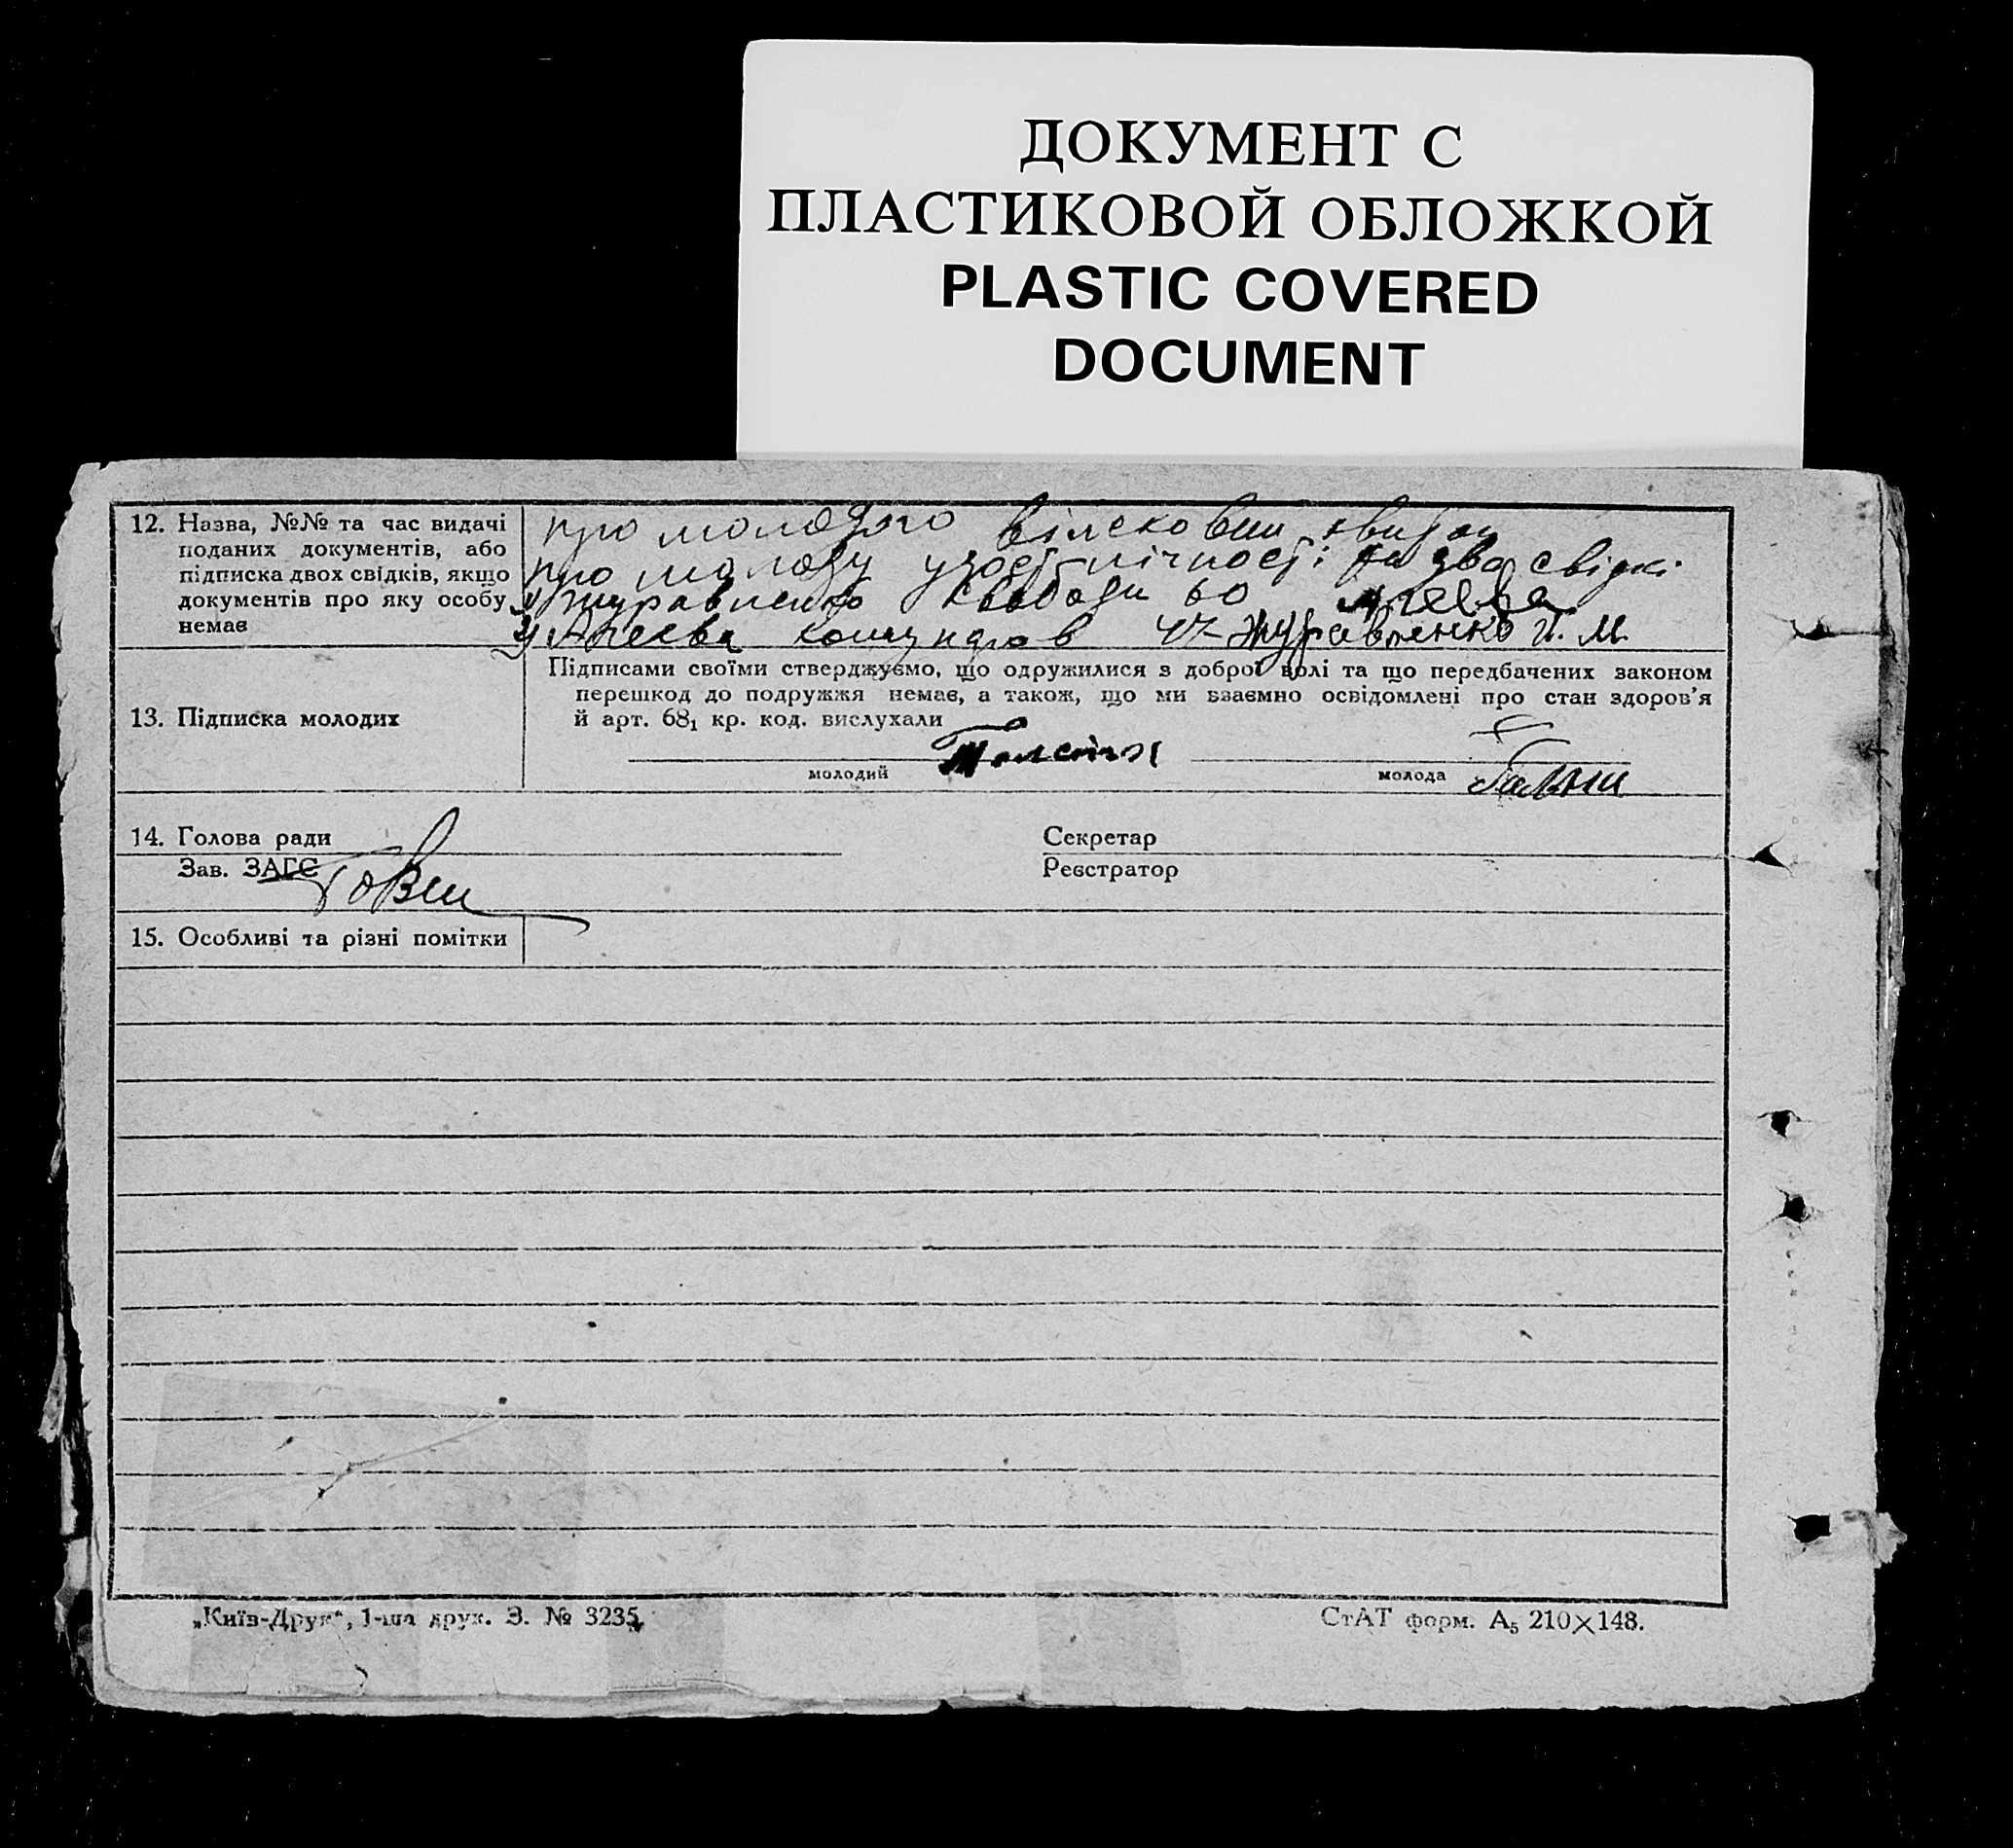 ДОКУМЕНТ С
ПЛАСТИКОВОЙ ОБЛОЖКОЙ
PLASTIC COVERED
DOCUMENT
12. Назва, №№ та час видачі
поданих документів, або
підписка двох свідків, якщо
документів про яку особу
немає
про молодого
про молоду два свідкі
1) Журавленко Свободи 60 Агеева
2) Агеева комунаров 47 Журавленко И. М.
13. Підписка молодих
Підписами своїми стверджуємо, що одружилися з доброї волі та що передбачених законом
перешкод до подружжя немає, а також, що ми взаємно освідомлені про стан здоров'я
й арт. 68₁ кр. код. вислухали
молодий
молода
14. Голова ради
Секретар
Зав. ЗАГС
Реєстратор
15. Особливі та різні помітки
„Київ-Друк“, 1-ша друк. З. № 3235
СтАТ форм. А₅ 210×148.